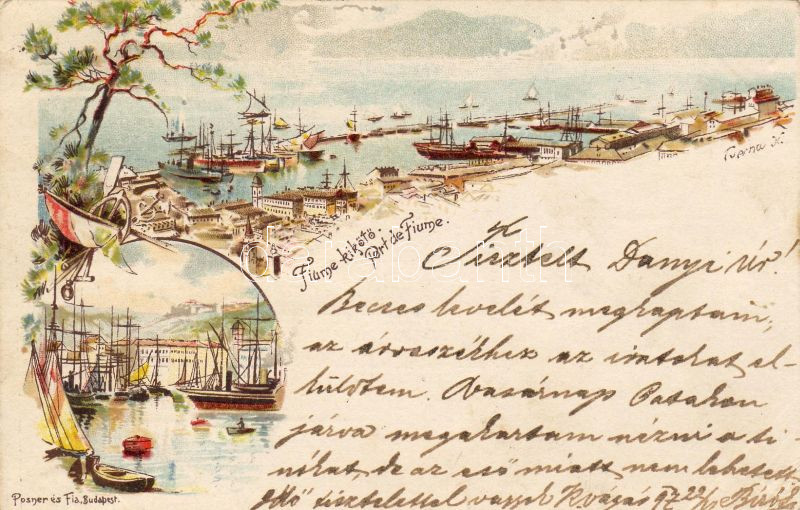 Fiume kikötő.
Port de Fiume.
Tisztelt Danyi Úr!
Becses levelét megkaptam,
az árvaszékhez az iratokat el-
küldöttem. Vasárnap Patakon
járva megakartam nézni a ti-
nókat, de az eső miatt nem lehetett
tisztelettel vagyok
Posner és Fia, Budapest.